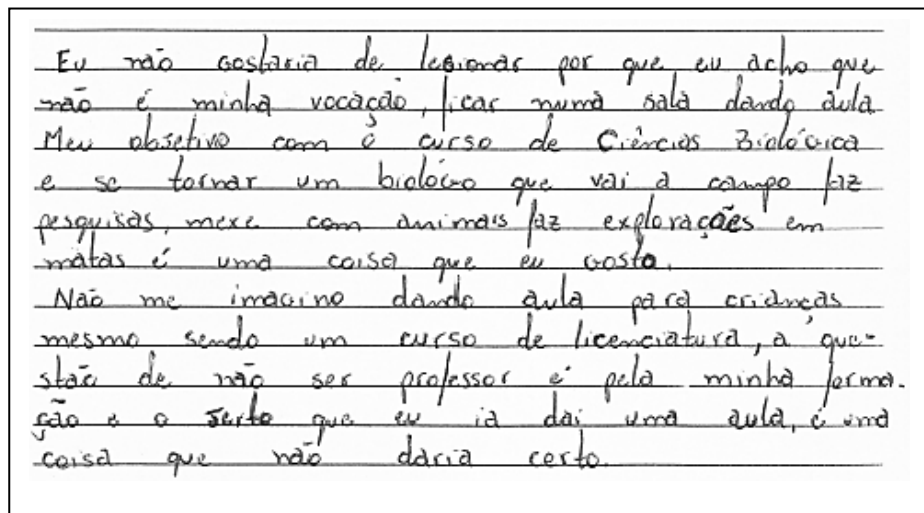 Eu não gostaria de lesionar por que eu acho que
não é minha vocação, ficar numa sala dando aula
Meu obsetivo com o curso de Ciências Biológica
e se tornar um biológo que vai a campo faz
pesquisas, mexe com animais faz explorações em
matas é uma coisa que eu gosto.
Não me imagino dando aula para crianças
mesmo sendo um curso de licenciatura, a que-
stão de não ser professor é pela minha forma-
ção e o serto que eu ia dai uma aula, é uma
coisa que não daria certo.